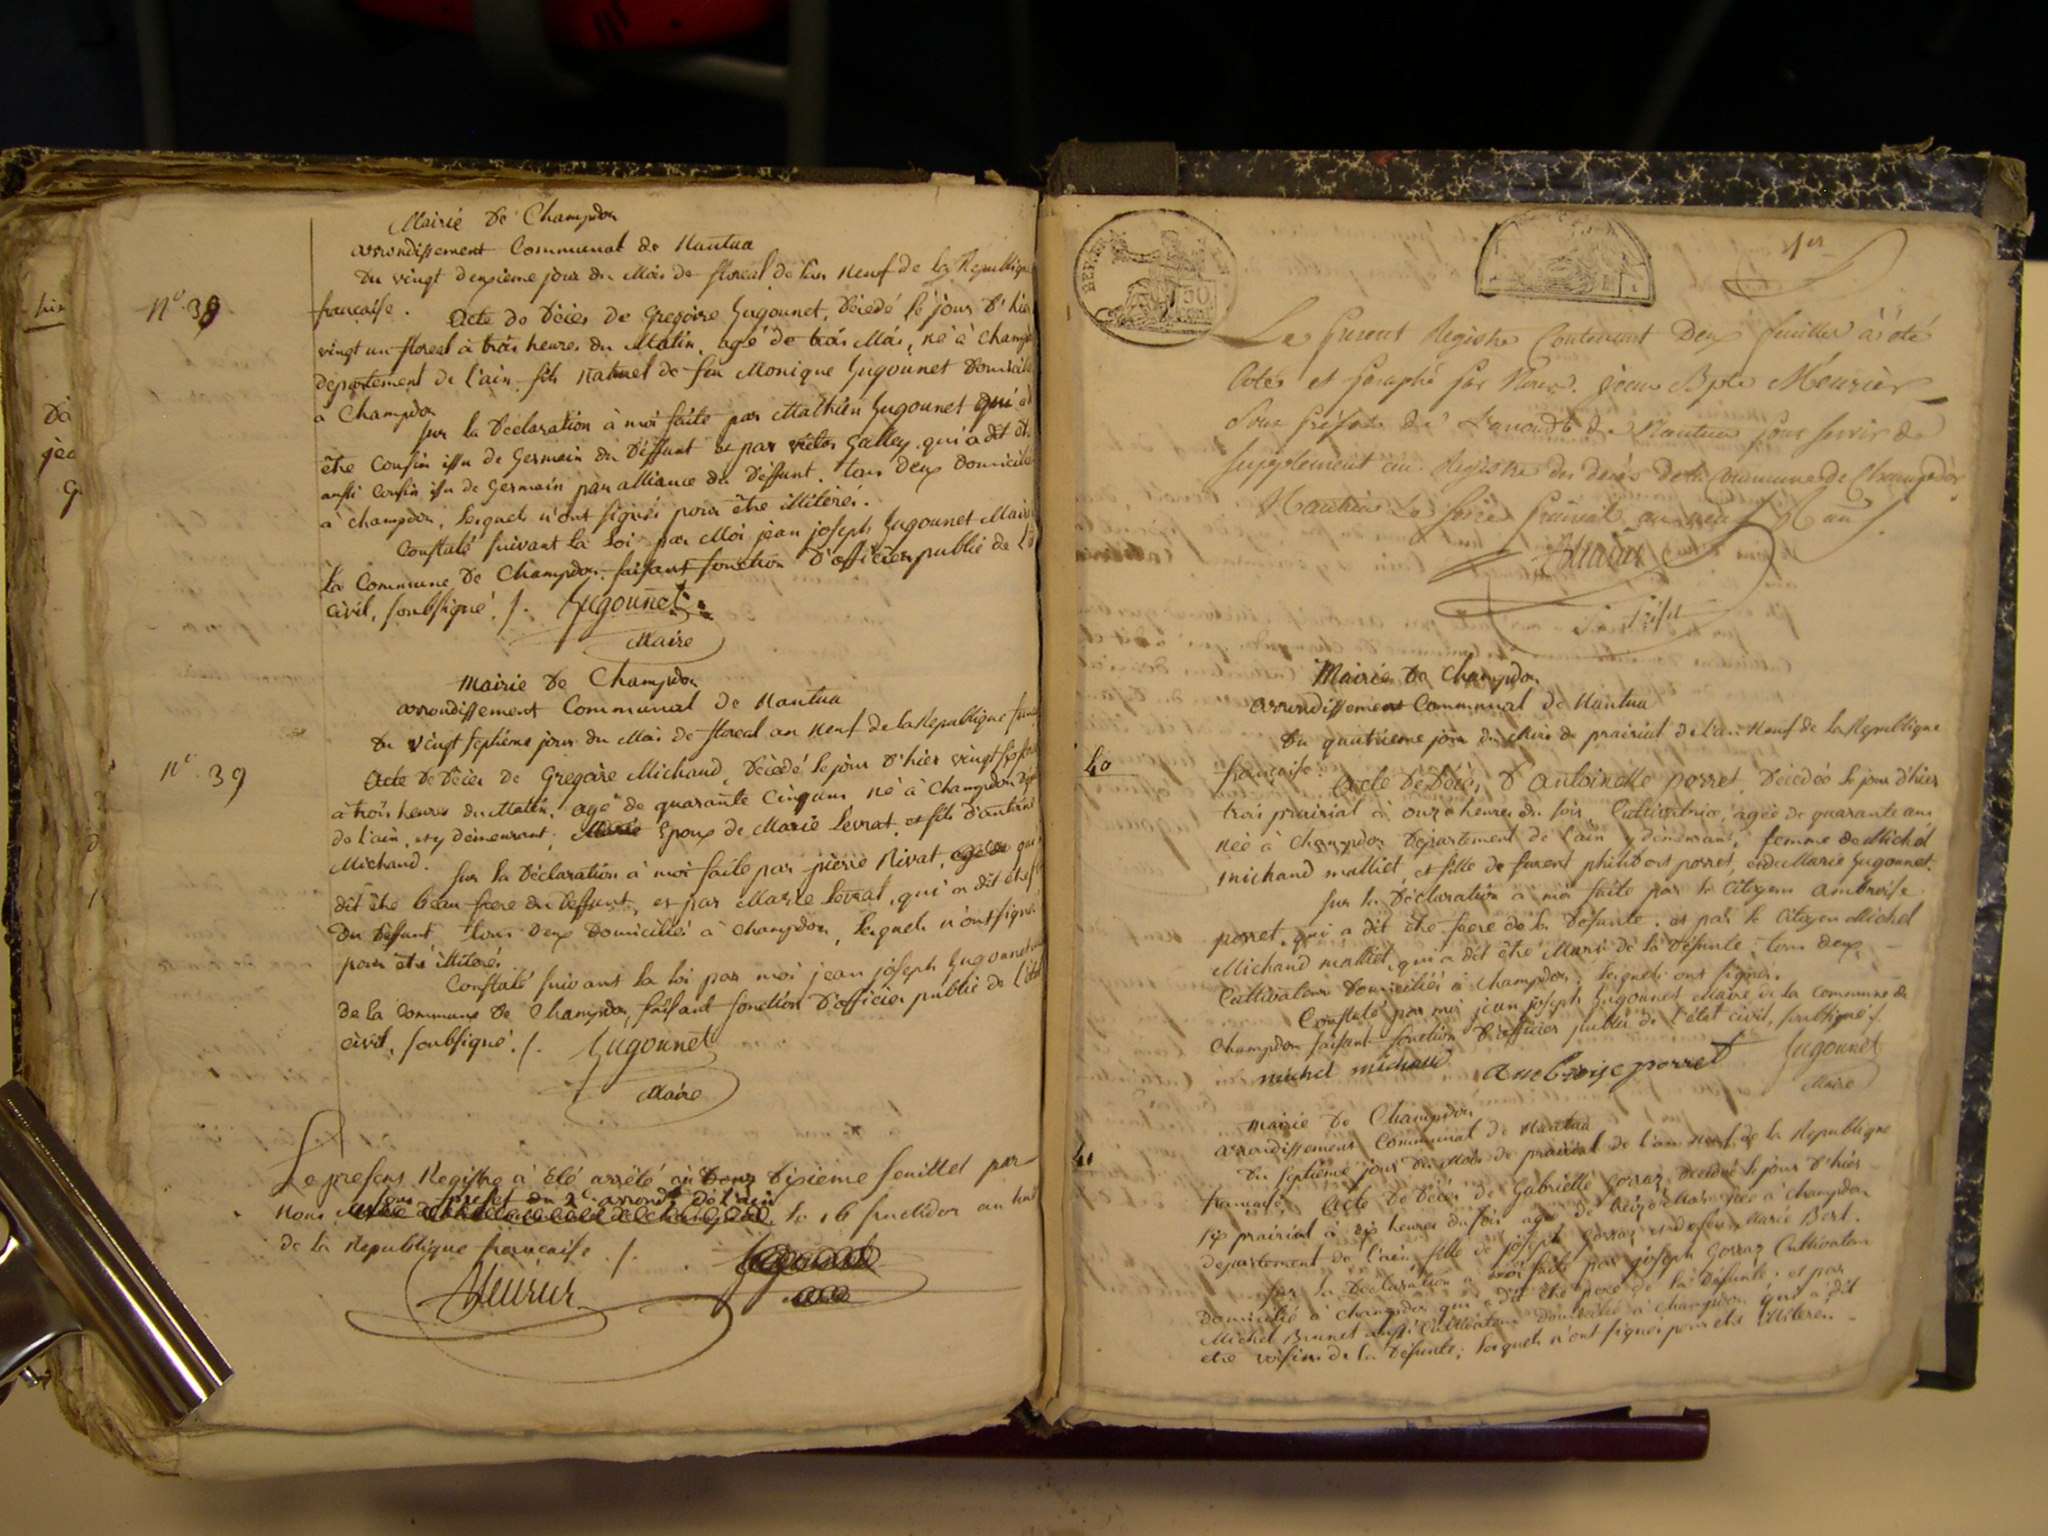 Mairie De Champdor
arrondissement Communal de Nantua
Du vingt deuxieme jour du Mois de floreal de l'an Neuf de la Republique
N° 38
françaiſe. Acte de Décès de Gregoire Jugounet, Décedé le jour d'hier
vingt un floreal à trois heures du Matin, agé de trois Mois, né à Champd
département de l'ain fils Naturel de feu Monique Jugounet Domicilié
à Champdor
ſur la Déclaration à moi faite par Mathieu Jugounet qui a d
être Couſin iſſu de Germain du Deffunt et par victor Galley qui a dit êt
auſſi Couſin iſſu de Germain par alliance du Deffunt. tous Deux Domiciliés
à champdor, leſquels n'ont ſignés pour être illiterés.
Conſtaté ſuivant la Loi par Moi jean joſeph Jugounet Maire
la Commune de Champdor faiſant fonction D'officier public de l'é
civil, ſoubſigné ./. Jugounet
Maire
Mairie De Champdor
arrondissement Communal de Nantua
Du vingt ſeptieme jour du Mois de floreal an Neuf de la Republique franc
N° 39
Acte De Décès de Gregoire Michaud, Décedé le jour d'hier vingt
à trois heures du Matin, agé de quarante Cinq ans Né à Champdor
de l'ain, et y démeurant, Epoux de Marie Levrat, et fils d'
Michaud. ſur la Déclaration à moi faite par pierre Rivat, qui
dit être beau frere du Deffunt, et par Marie Levrat, qui a dit être
Du Deffunt, tous Deux Domiciliés à Champdor, leſquels n'ont ſignés
pour être illiterés
Conſtaté ſuivant la loi par moi jean joſeph Jugounet
de la Commune de Champdor, faiſant fonction D'officier public de l'état
civil, ſoubſigné ./. Jugounet
Maire
Le preſent Regiſtre à été arrêté au Dixieme feuillet par
ſous prefet du 2e arrond.t de l'ain
Nous le 16 fructidor an
de la Republique françaiſe ./.
Meurier
1er
Le preſent Regiſtre Contenant Deux feuillets à été
Cotés et paraphé par Nous jean Bpte Meurier
Sous Préfet de de Nantua pour ſervir de
ſupplement au Regiſtre des décès de la Commune de Champdor
Nantua le prairial an neuf
Meurier
Mairie De Champdor
arrondissement Communal de Nantua
Du quatrieme jour du Mois de prairial de l'an Neuf de la Republique
40
françaiſe. Acte De Décès D'Antoinette porret, Décedée le jour d'hier
trois prairial à onze heures du ſoir, Cultivatrice, agée de quarante ans
Née à Champdor Département de l'ain y démeurant, femme de Michel
michaud malliet, et fille de philibert porret, et de Marie Jugounet.
ſur la Déclaration à moi faite par le Citoyen Ambroiſe
porret, qui a dit être frere de la Défunte, et par le Citoyen Michel
Michaud malliet, qui a dit être Mari de la Défunte; tous deux
Cultivateurs Domiciliés à Champdor; leſquels ont ſignés.
Conſtaté par moi jean joſeph Jugounet Maire de la Commune de
Champdor faiſant fonction D'officier public de l'état civil, ſoubſigné ./.
michel michaud ambroiſe porret Jugounet
Maire
Mairie De Champdor
arrondissement Communal de Nantua
Du ſeptieme jour du Mois de prairial de l'an Neuf de la Republique
41
françaiſe. Acte De Décès de Gabrielle Gorraz, Décedée le jour d'hier
ſix prairial à dix heures du ſoir agée de Mois Née à Champdor
département de l'ain, fille de joſeph Gorraz et de Marie Bert.
ſur la Déclaration à moi faite par joſeph Gorraz Cultivateur
domicilié à Champdor qui a dit être pere de la Défunte; et par
Michel Brunet auſſi Cultivateur domicilié à Champdor, qui a dit
etre voiſin de la Défunte; leſquels n'ont ſignés pour être illiterés